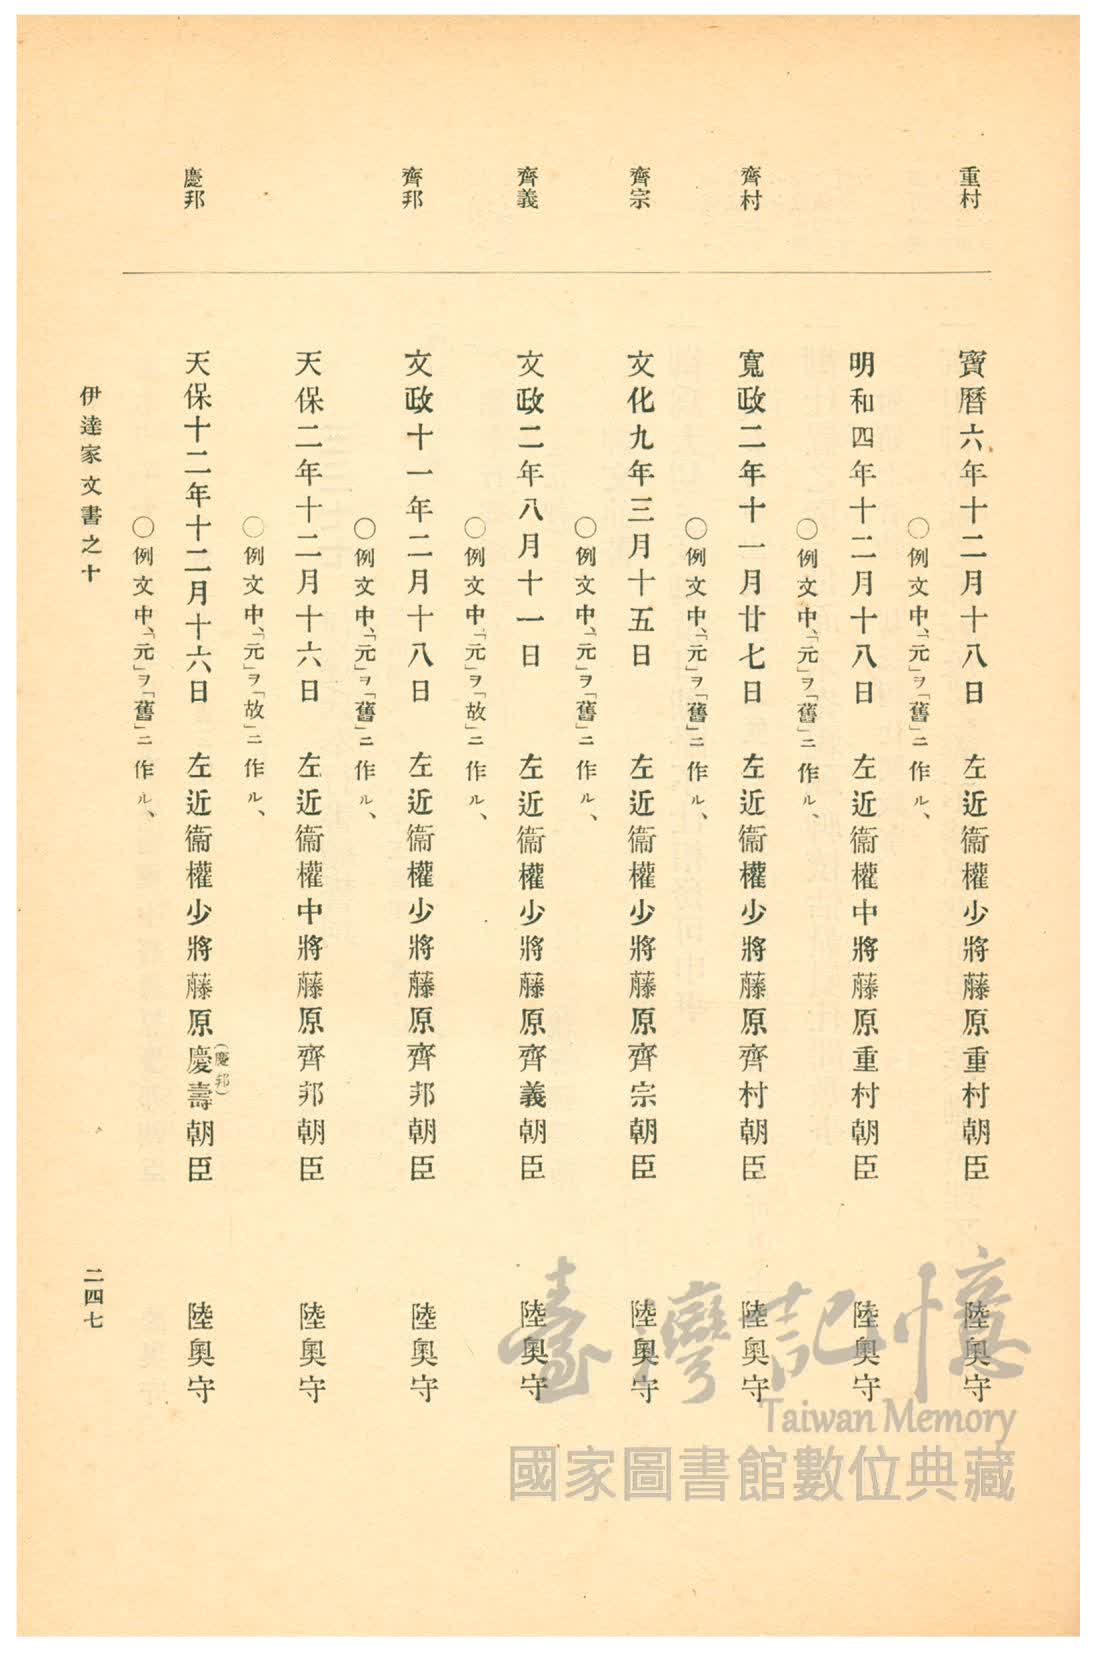 重村
寶曆六年十二月十八日 左近衞權少將藤原重村朝臣 陸奧守
○例文中、「元」ヲ「舊」ニ作ル、
明和四年十二月十八日 左近衞權中將藤原重村朝臣 陸奧守
○例文中、「元」ヲ「舊」ニ作ル、
齊村
寬政二年十一月廿七日 左近衞權少將藤原齊村朝臣 陸奧守
○例文中、「元」ヲ「舊」ニ作ル、
齊宗
文化九年三月十五日 左近衞權少將藤原齊宗朝臣 陸奧守
○例文中、「元」ヲ「舊」ニ作ル、
齊義
文政二年八月十一日 左近衞權少將藤原齊義朝臣 陸奧守
○例文中、「元」ヲ「故」ニ作ル、
齊邦
文政十一年二月十八日 左近衞權少將藤原齊邦朝臣 陸奧守
○例文中、「元」ヲ「舊」ニ作ル、
天保二年十二月十六日 左近衞權中將藤原齊邦朝臣 陸奧守
○例文中、「元」ヲ「故」ニ作ル、
慶邦
天保十二年十二月十六日 左近衞權少將藤原慶壽(慶邦)朝臣 陸奧守
○例文中、「元」ヲ「舊」ニ作ル、
伊達家文書之十
二四七
臺灣記憶
Taiwan Memory
國家圖書館數位典藏